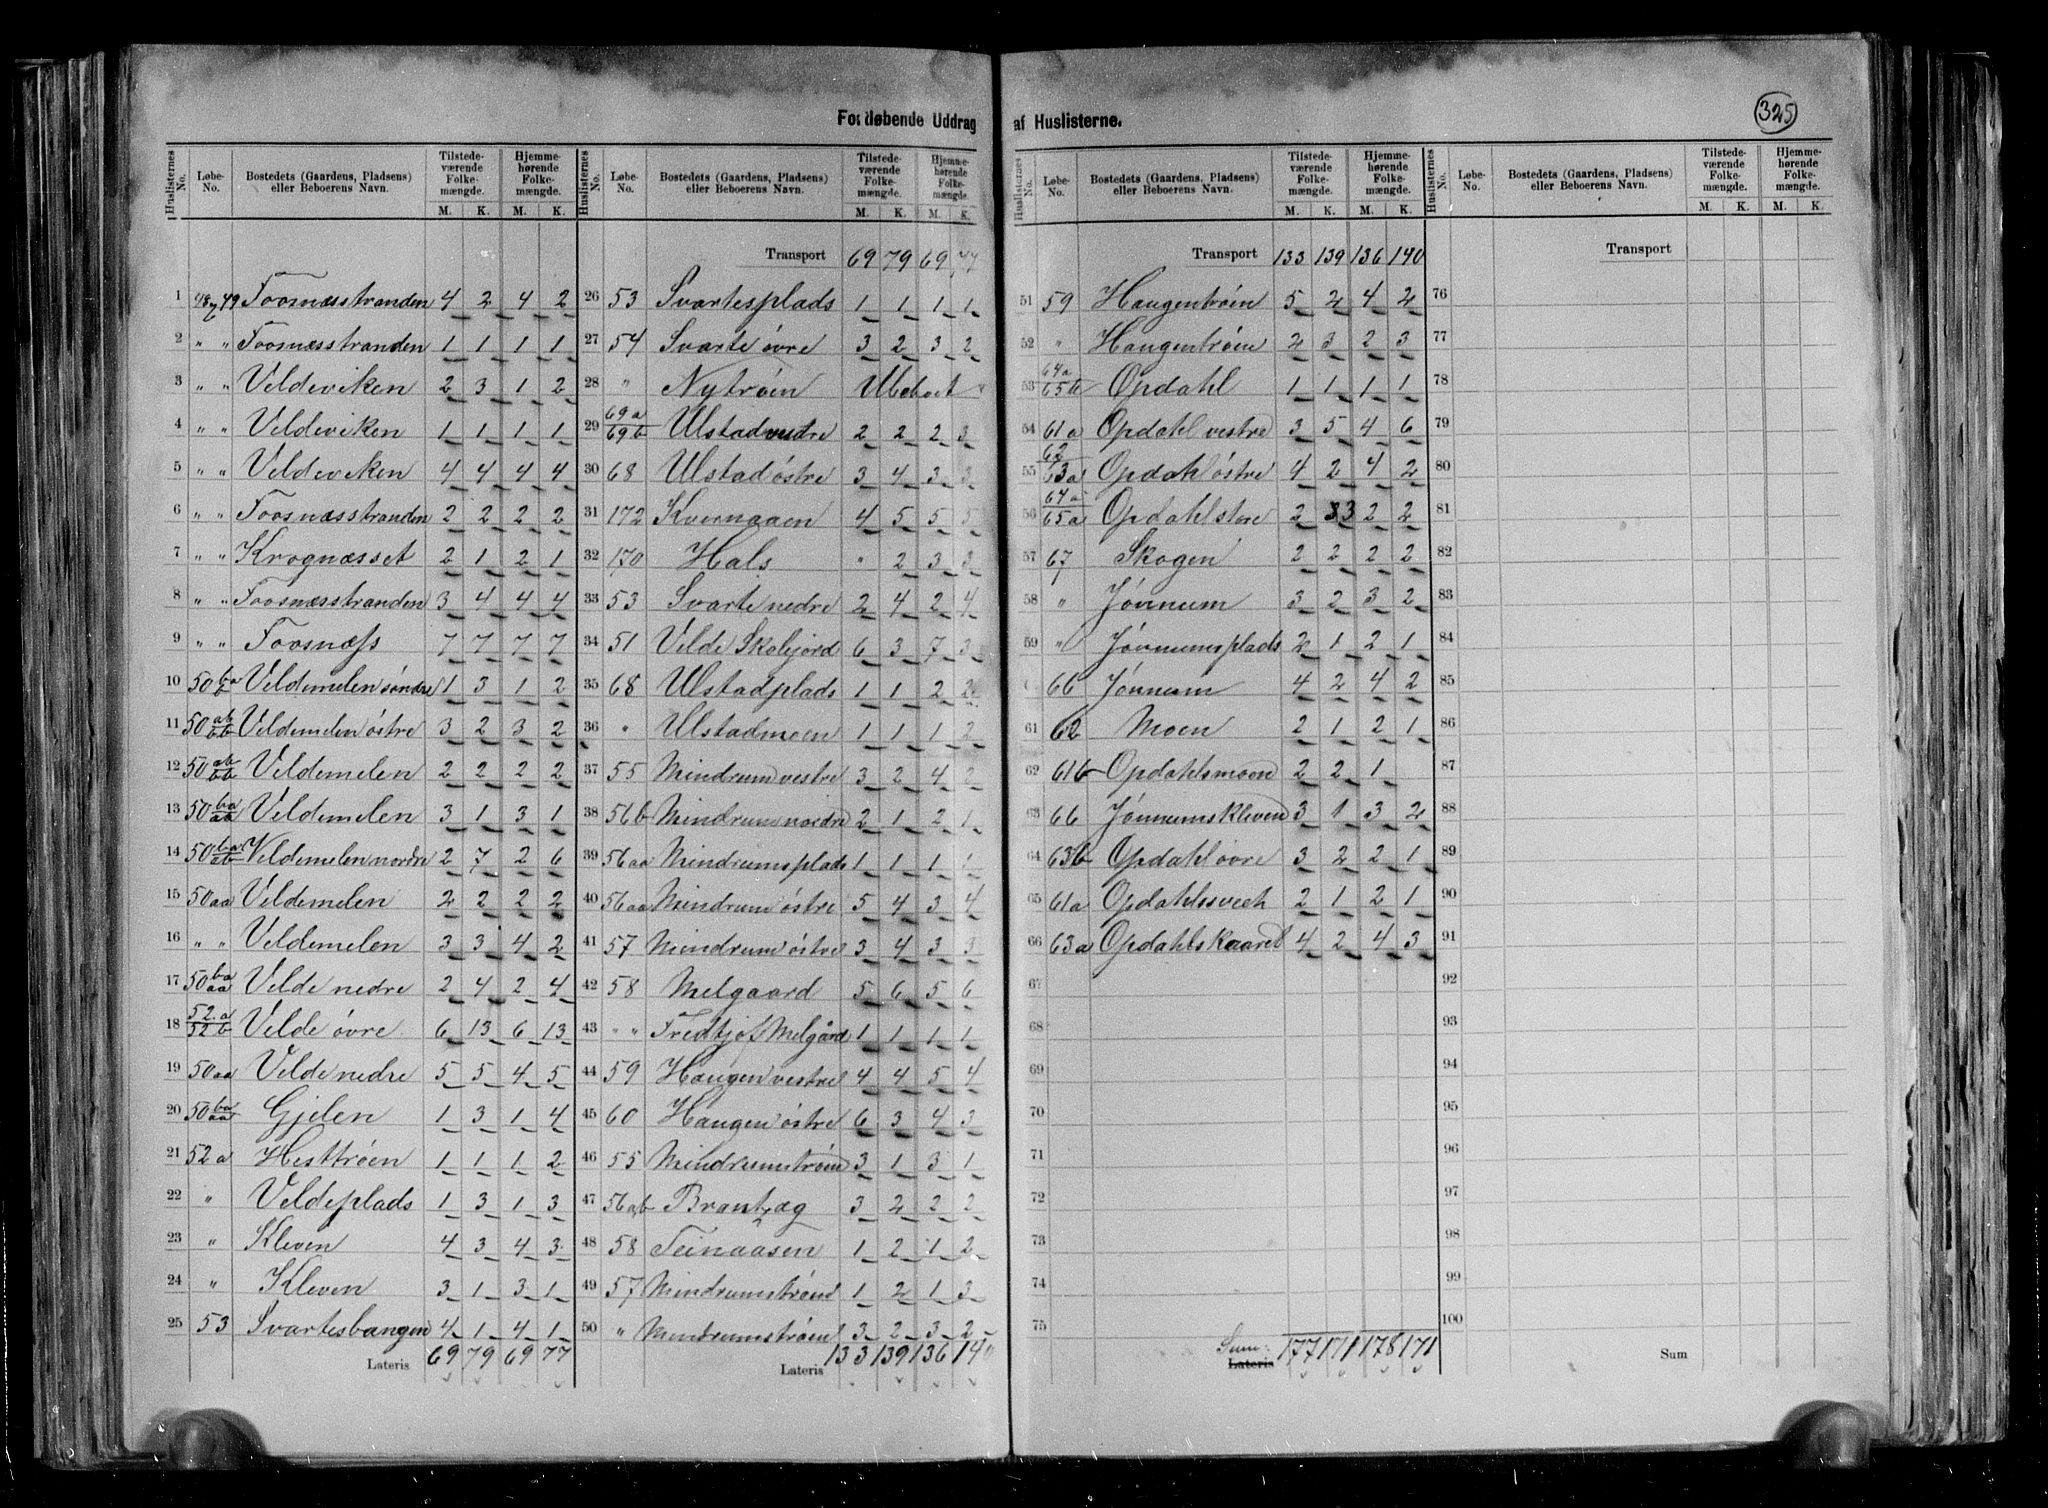 325
Fortløbende Uddrag af Huslisterne.
Huslisternes No. Løbe-No. Bostedets (Gaardens, Pladsens) eller Beboerens Navn. Tilstedeværende Folkemængde. M. K. Hjemmehørende Folkemængde. M. K.
1 48, 49 Foosnæsstranden 4 2 4 2
2 " " Foosnæsstranden 1 1 1 1
3 " " Veldeviken 2 3 1 2
4 " " Veldeviken 1 1 1 1
5 " " Veldeviken 4 4 4 4
6 " " Foosnæsstranden 2 2 2 2
7 " " Krognæsset 2 1 2 1
8 " " Foosnæsstranden 3 4 4 4
9 " " Foosnæss 7 7 7 7
10 50 Veldemelen söndre 1 3 1 2
11 50 ab/bb Veldemelen östre 3 2 3 2
12 50 ab/bb Veldemelen 2 2 2 2
13 50 ba/ab Veldemelen 3 1 3 1
14 50 ba/ab Veldemelen nordre 2 7 2 6
15 50 aa Veldemelen 2 2 2 2
16 " " Veldemelen 3 3 4 2
17 50 ba/aa Velde nedre 2 4 2 4
18 52.a/52 b Velde övre 6 13 6 13
19 50 aa Velde nedre 5 5 4 5
20 50 ba/aa Gjelen 1 3 1 4
21 52 a Hesttröen 1 1 1 2
22 " Veldeplads 1 3 1 3
23 " Kleven 4 3 4 3
24 " Kleven 3 1 3 1
25 53 Svartesbangen 4 1 4 1
Lateris 69 79 69 77
Huslisternes No. Løbe-No. Bostedets (Gaardens, Pladsens) eller Beboerens Navn. Tilstedeværende Folkemængde. M. K. Hjemmehørende Folkemængde. M. K.
Transport 69 79 69 77
26 53 Svartesplads 1 1 1 1
27 54 Svarte övre 3 2 3 2
28 " Nytröen Ubeboet "
29 69 a/69 b Ulstad vestre 2 2 2 3
30 68 Ulstad östre 3 4 3 3
31 172 Kvernaaen 4 5 5 5
32 170 Hals " 2 3 3
33 53 Svarte nedre 2 4 2 4
34 51 Velde Skolejord 6 3 7 3
35 68 Ulstadplads 1 1 2 2
36 " Ulstadmoen 1 1 1 2
37 55 Mindrum vestre 3 2 4 2
38 56 b Mindrum nordre 2 1 2 1
39 56 aa Mindrumsplads 1 1 1 1
40 56 aa Mindrum östre 5 4 3 4
41 57 Mindrum östre 3 4 3 3
42 58 Melgaard 5 6 5 6
43 " " Fredtjof Melgård 1 1 1 1
44 59 Haugen vestre 4 4 5 4
45 60 Haugen östre 6 3 4 3
46 55 Mindrumströen 3 1 3 1
47 56 ab Brantæg 3 2 2 2
48 58 Teinaasen 1 2 1 2
49 57 Mindrumströen 1 2 1 3
50 " Mindrumströen 3 2 3 2
Lateris 133 139 136 14"
Huslisternes No. Løbe-No. Bostedets (Gaardens, Pladsens) eller Beboerens Navn. Tilstedeværende Folkemængde. M. K. Hjemmehørende Folkemængde. M. K.
Transport 133 139 136 140
51 59 Haugentröen 5 2 4 2
52 " Haugentröen 2 3 2 3
53 64a/65 b Opdahl 1 1 1 1
54 61 a Opdahl vestre 3 5 4 6
55 62/63 a Opdahl östre 4 2 4 2
56 64 a/65 a Opdahl store 2 3 2 2
57 67 Skogen 2 2 2 2
58 " Jönnum 3 2 3 2
59 " Jönnumsplads 2 1 2 1
66 Jönnum 4 2 4 2
61 62 Moen 2 1 2 1
62 61 b Opdahlsmoen 2 2 1
63 66 Jönnumskleven 3 1 3 2
64 63 b Opdahl övre 3 2 2 1
65 61 a Opdahlssveet 2 1 2 1
66 63 a Opdahlskaaret 4 2 4 3
67
68
69
70
71
72
73
74
75
Sum: Lateris 177 171 178 171
Huslisternes No. Løbe-No. Bostedets (Gaardens, Pladsens) eller Beboerens Navn. Tilstedeværende Folkemængde. M. K. Hjemmehørende Folkemængde. M. K.
Transport
76
77
78
79
80
81
82
83
84
85
86
87
88
89
90
91
92
93
94
95
96
97
98
99
100
Sum